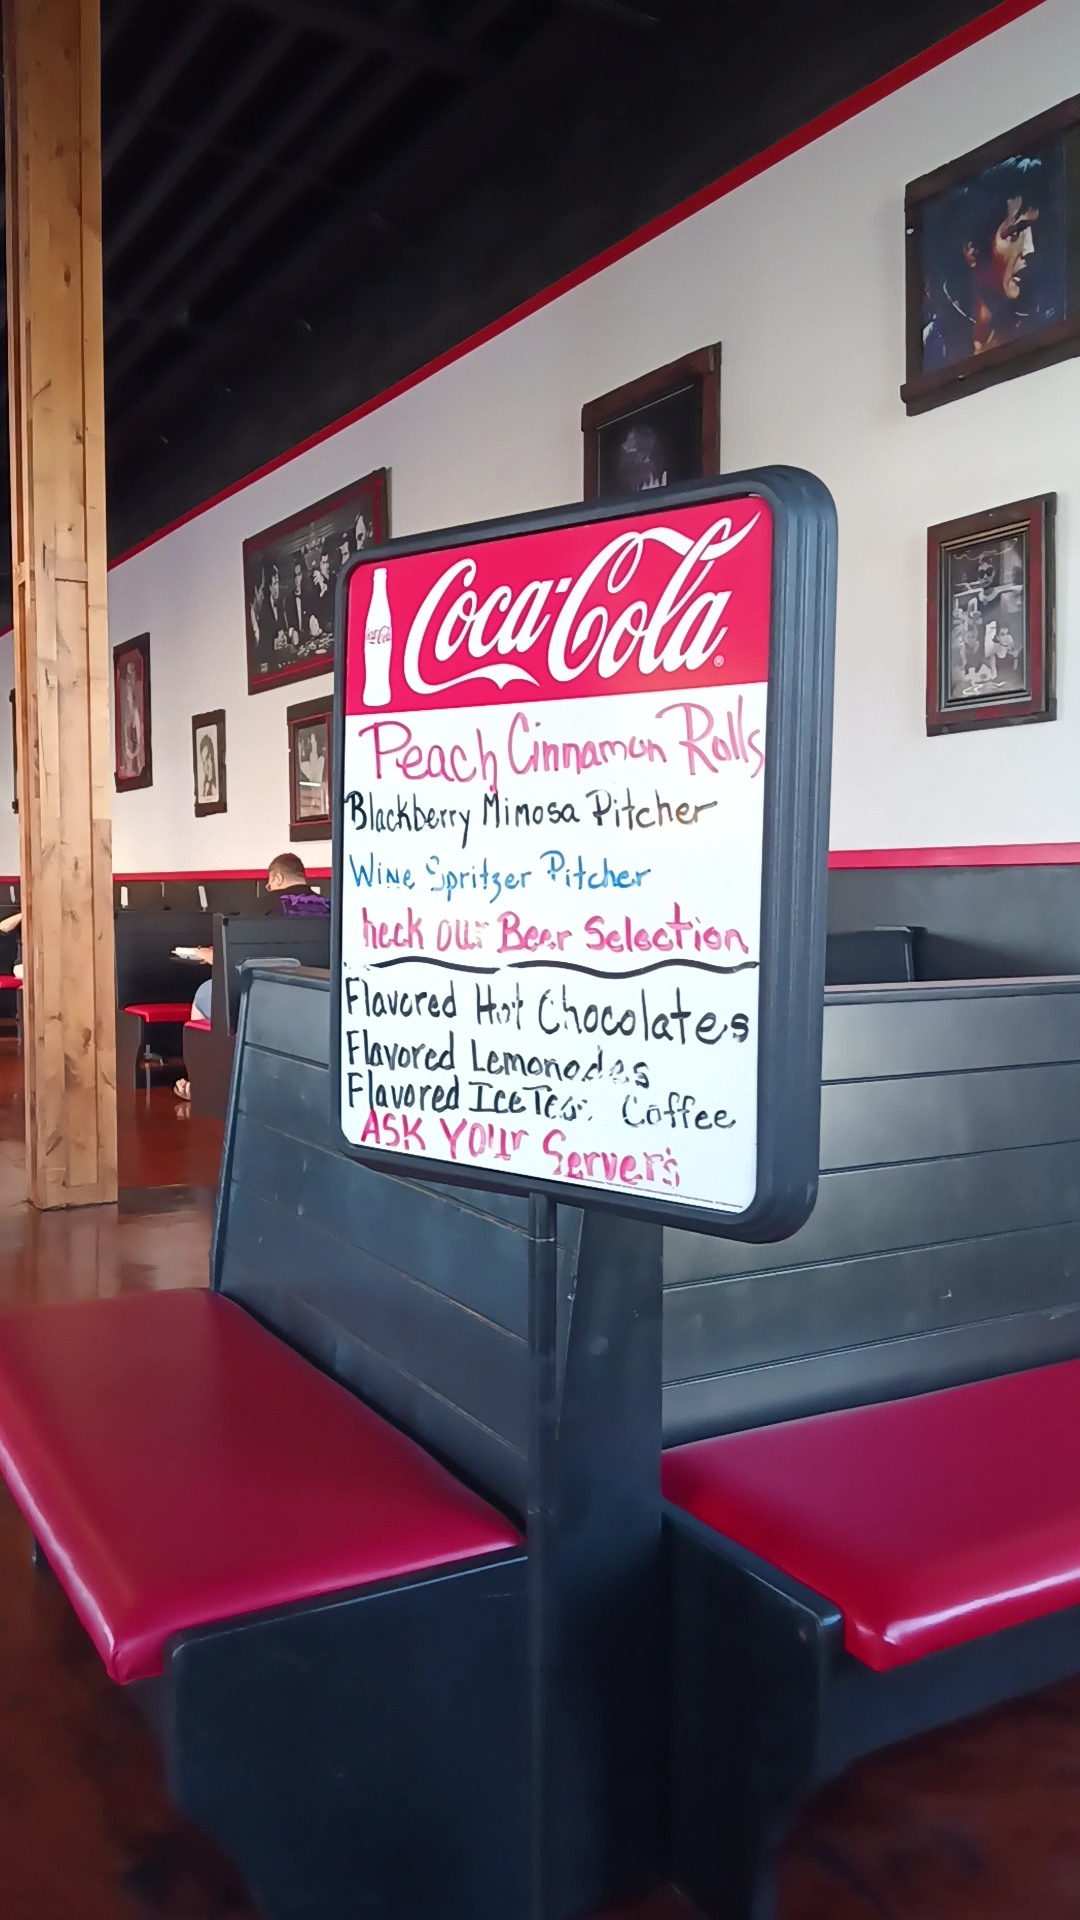 Coca-Cola
Peach Cinnamon Rolls
Blackberry Mimosa Pitcher
Wine Spritzer Pitcher
heck our Beer Selection
Flavored Hot Chocolates
Flavored Lemonades
Flavored Ice Tea. Coffee
ASK YOUr Servers